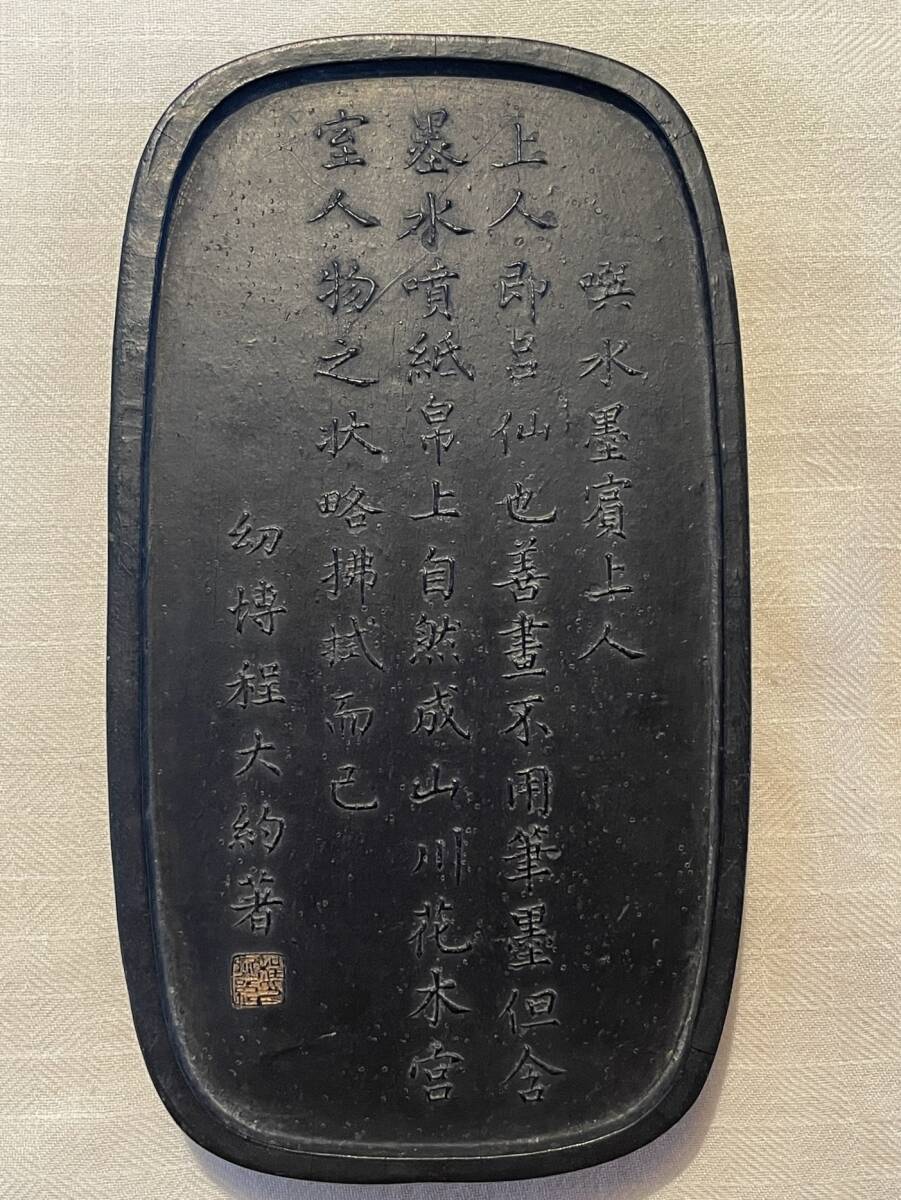 噀水墨賓上人
上人即呂仙也善畫不用筆墨但含
墨水噴紙帛上自然成山川花木宮
室人物之狀略拂拭而已
幼博程大約著